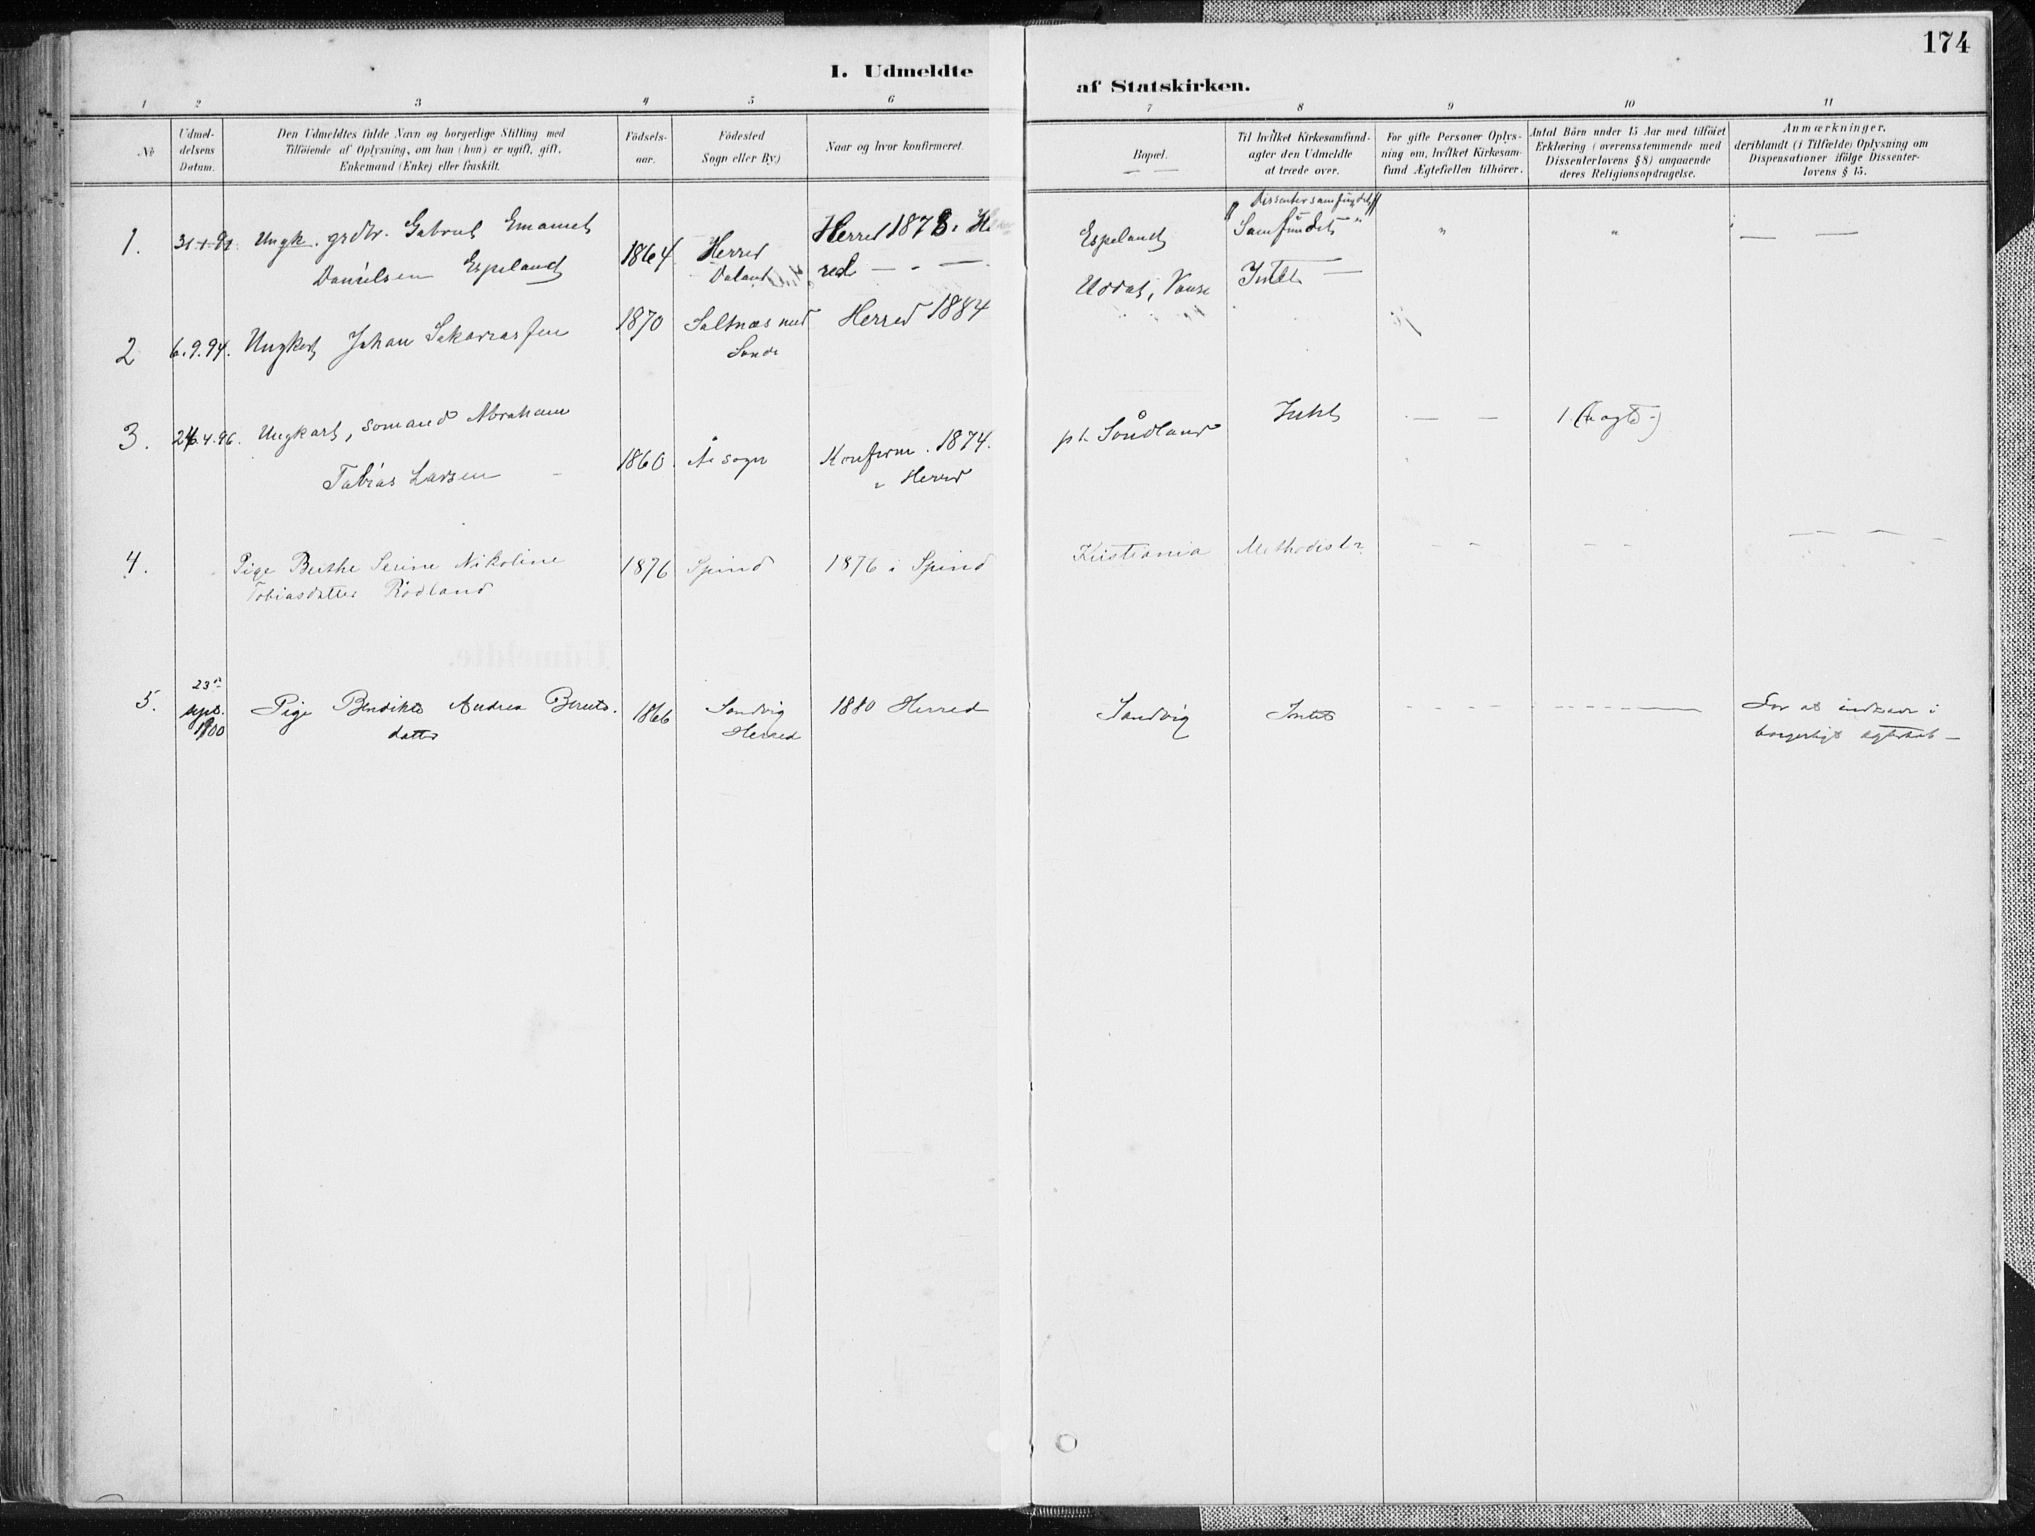 174
I. Udmeldte af Statskirken.
1 2 3 4 5 6 7 8 9 10 11
No
Udmel-
delsens
Datum.
Den Udmeldtes fulde Navn og borgerlige Stilling med
Tilföiende af Oplysning, om han (hun) er ugift, gift,
Enkemand (Enke) eller fraskilt.
Födsels-
aar.
Födested
Sogn eller By.)
Naar og hvor konfirmeret.
Bopæl.
Til hvilket Kirkesamfund-
agter den Udmeldte
at træde over.
For gifte Personer Oplys-
ning om, hvilket Kirkesam-
fund Ægtefællen tilhörer.
Antal Börn under 15 Aar med tilföiet
Erklæring (overensstemmende med
Dissenterlovens § 8) angaaende
deres Religionsopdragelse.
Anmærkninger.
deriblandt (i Tilfælde) Oplysning om
Dispensationer ifölge Dissenter-
lovens § 15.
1. Ungk. grdbr. Gabriel Emanuel
Danielsen Espeland
1864
Herred
Herred 1878 i Her
red
Espeland
"Dissentersamfundet"
Samfundet
2 6.9.94. Ungkarl Johan Sakariassen
1870
Saltnæs ned
Sande
Herred 1884
Uddal, Vanse
Intet
3. 24.4.96. Ungkarl, sømand Abraham
Tobias Larsen
1860 Å sogn
Konfirm. 1874.
i Herred
pt. Sådland
Intet
— —
4. Pige Berthe Serine Nikoline
Tobiasdatter Rødland
1876 Spind 1876 i Spind
Kristiania
Methodist
5. 23de
sept.
1900
Pige Bendikte Andrea Bernts-
datter
1866
Sandvig
Herred
1880 Herred
Sandvig
Intet
For at indtræde i
borgerligt ægteskab —
Udmeldte.